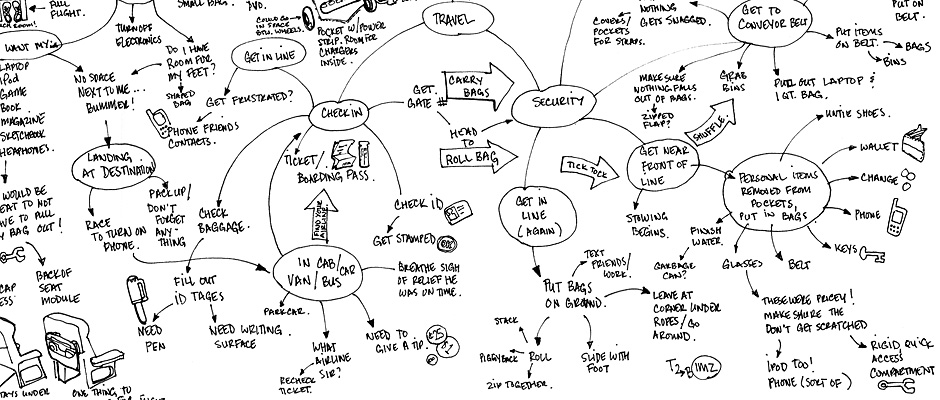 FULL
FLIGHT.
WANT MY
LAPTOP
IPOD
GAME
BOOK
MAGAZINE
SKETCHBOOK
HEADPHONES.
TURN OFF
ELECTRONICS
NO SPACE
NEXT TO ME...
BUMMER!
DO I HAVE
ROOM FOR
MY FEET?
SHAPED
BAG
SMALL BAG.
DVD.
GET IN LINE
GET FRUSTRATED?
PHONE FRIENDS
CONTACTS.
COULD GO
IN SPACE
BTW. WHEELS.
POCKET W/POWER
STRIP. ROOM FOR
CHARGERS
INSIDE.
TRAVEL
CHECK IN
GET
GATE #
CARRY
BAGS
HEAD
TO
ROLL BAG
SECURITY
COVERS/
POCKETS
FOR STRAPS.
GETS SNAGGED.
GET TO
CONVEYOR BELT
PUT ON
BELT.
PUT ITEMS
ON BELT.
BAGS
BINS
MAKE SURE
NOTHING FALLS
OUT OF BAGS.
ZIPPED
FLAP?
GRAB
BINS
PULL OUT LAPTOP &
1 QT. BAG.
SHUFFLE
TICK TOCK
GET NEAR
FRONT OF
LINE
STOWING
BEGINS.
PERSONAL ITEMS
REMOVED FROM
POCKETS,
PUT IN BAGS
UNTIE SHOES.
WALLET
CHANGE
PHONE
KEYS
BELT
GLASSES
FINISH
WATER.
GARBAGE
CAN?
THESE WERE PRICEY!
MAKE SURE THE
DON'T GET SCRATCHED
IPOD TOO!
PHONE (SORT OF)
RIGID, QUICK
ACCESS
COMPARTMENT
LANDING
AT DESTINATION
RACE
TO TURN ON
PHONE.
PACK UP/
DON'T
FORGET
ANY-
THING
CHECK
BAGGAGE.
TICKET/
BOARDING PASS.
FIND YOUR
AIRLINE.
CHECK ID
GET STAMPED
IN CAB/CAR
VAN/BUS
BREATHE SIGH
OF RELIEF HE
WAS ON TIME.
PARK CAR.
WHAT
AIRLINE
SIR?
RECHECK
TICKET.
NEED TO
GIVE A TIP.
FILL OUT
ID TAGES
NEED
PEN
NEED WRITING
SURFACE
GET IN
LINE
(AGAIN)
PUT BAGS
ON GROUND.
TEXT
FRIENDS/
WORK.
LEAVE AT
CORNER UNDER
ROPES/GO
AROUND.
STACK
PIGGYBACK
ROLL
ZIP TOGETHER.
SLIDE WITH
FOOT
WOULD BE
BACK OF
SEAT
MODULE
ONE THING TO